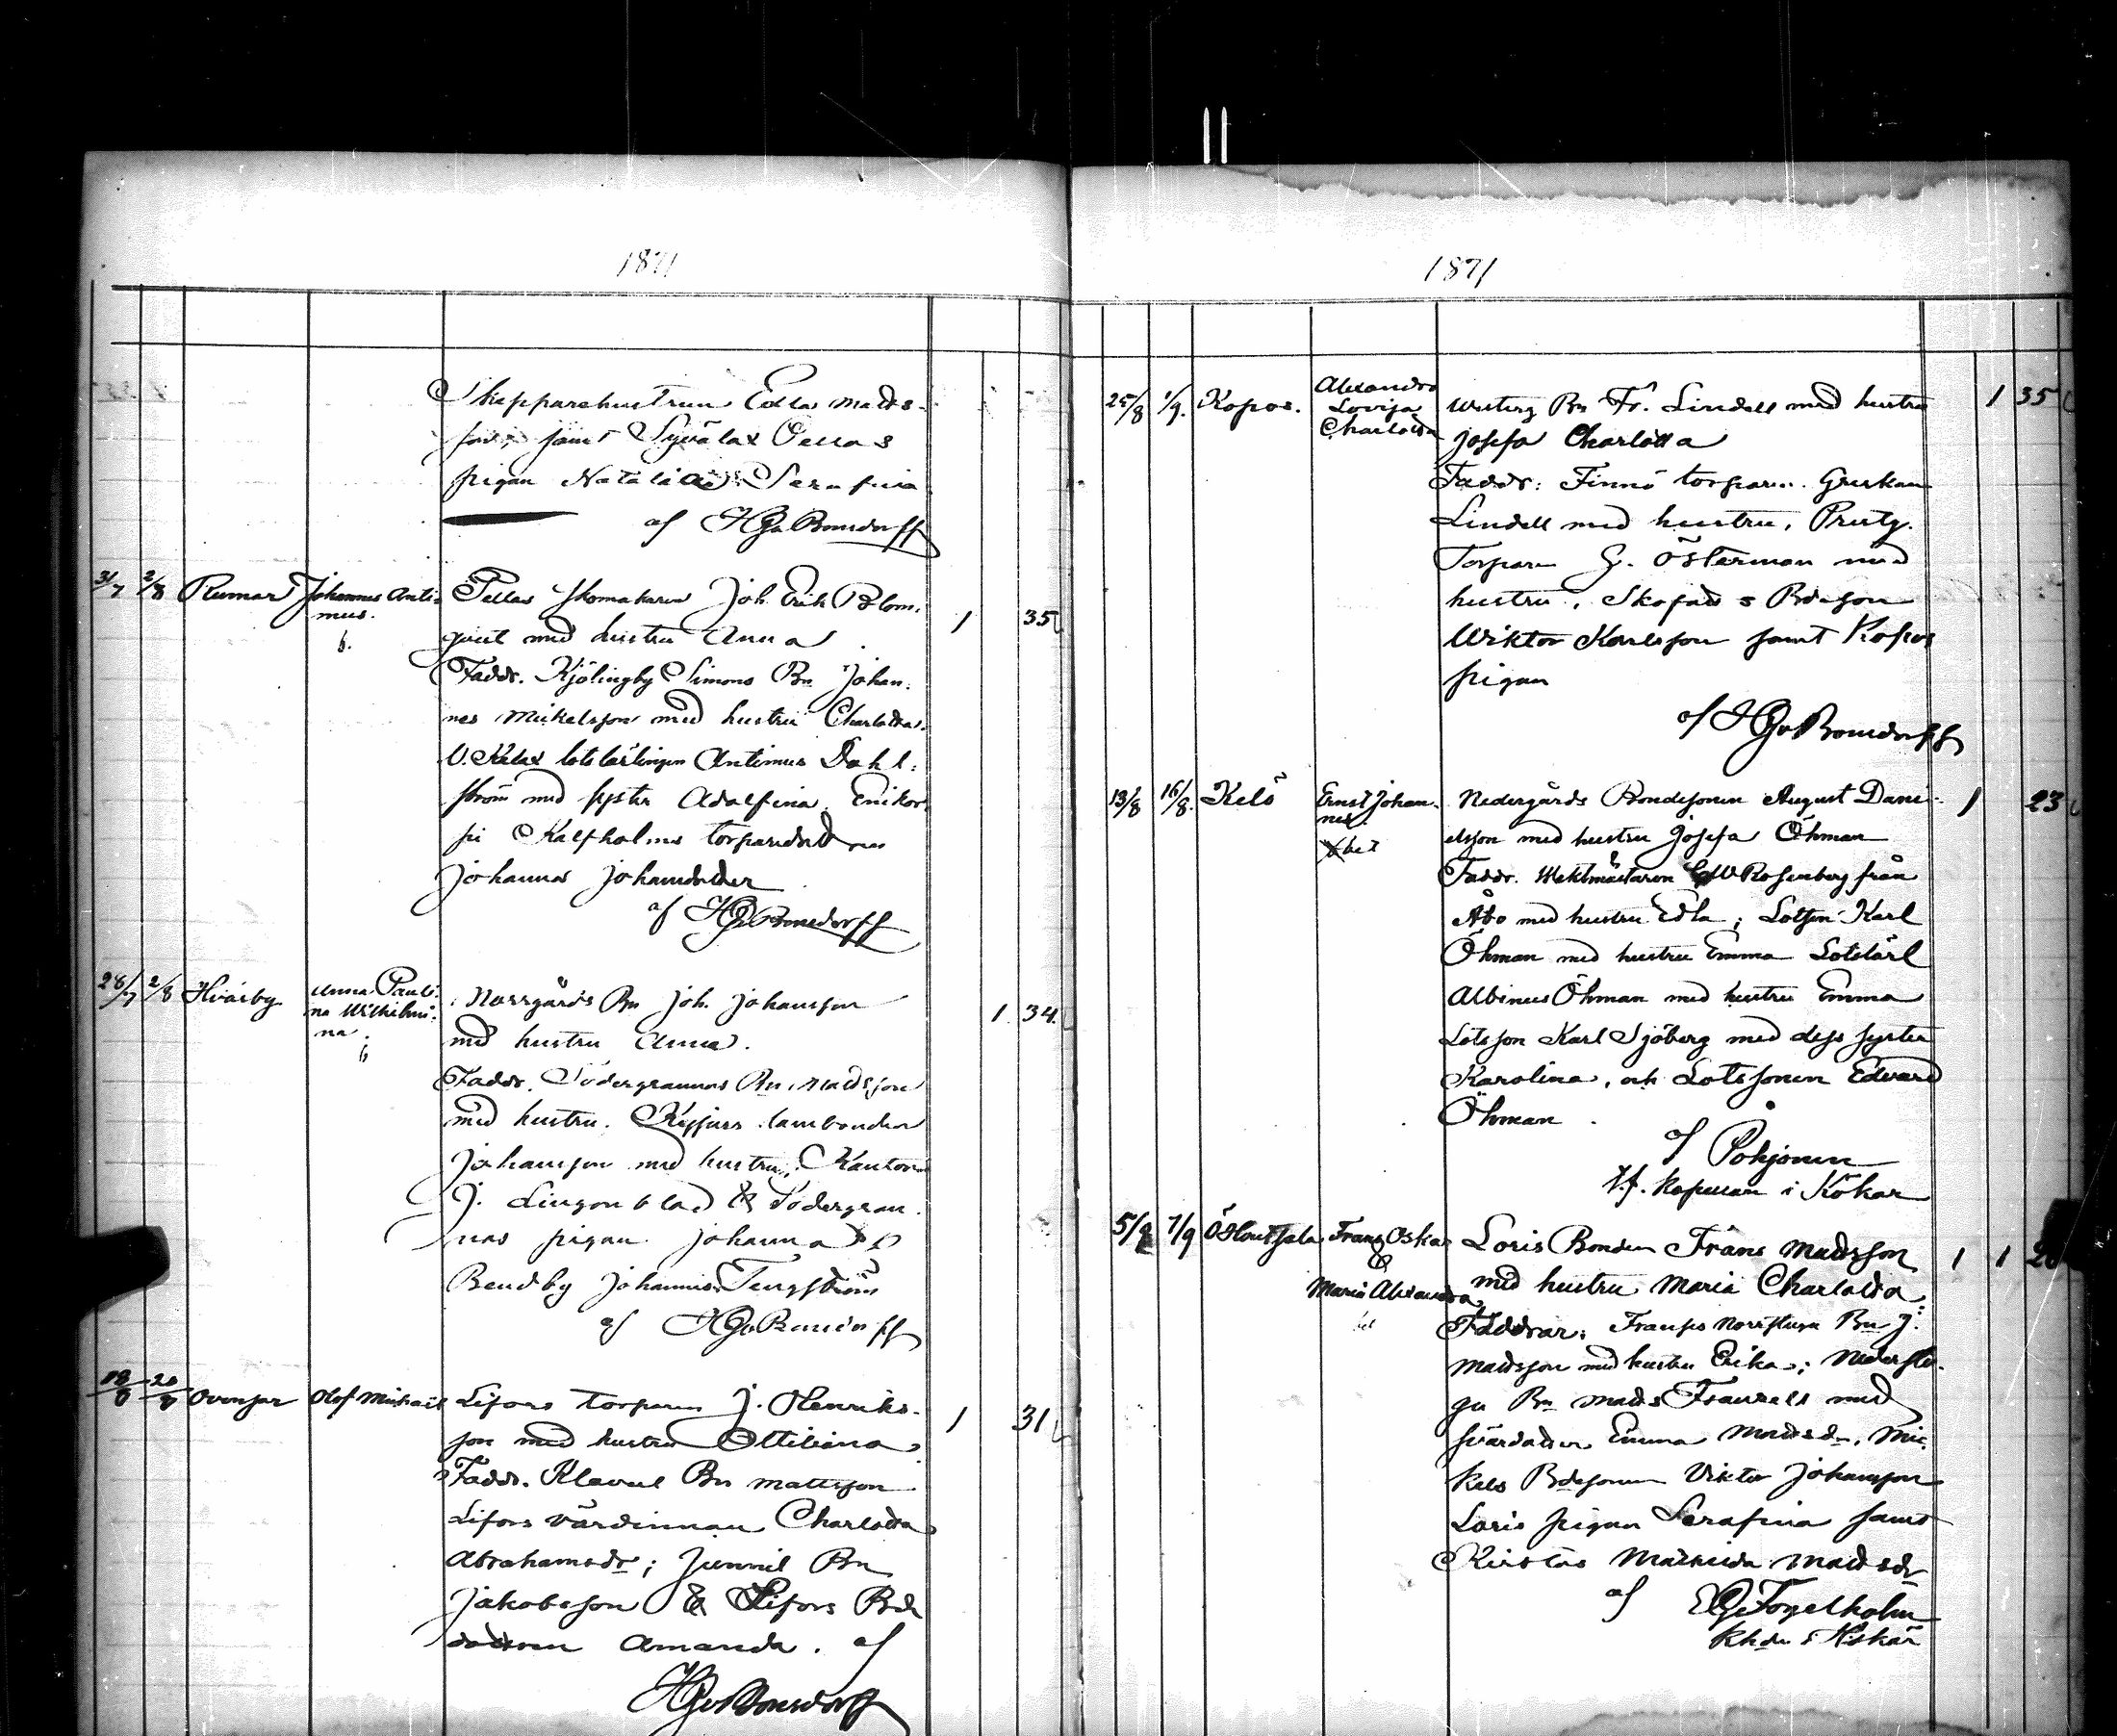 1871
Skepparehustrun Edla Matts-
samt Pellas
pigan Natalia Serafina
af HGvBonsdorff
31/7 2/8 Rumar Johannes Anti-
mus.
b.
Pellas skomakaren Joh. Erik Blom-
qvist med hustru Anna
1 35
Fadd. Kjölingby Simons Bn Johan-
nes Mickelsson med hustru Charlotta.
lotslärlingen Antimus Dahl-
ström med syster Adolfina
Kalfholms torparedottren
Johanna Johansdotter
af HGvBonsdorff
28/7 2/8 Hväsby Anna Pauli-
na Wilhelmi-
na.
b
Norrgårds Bn Joh. Johansson
med hustru Anna.
1 34.
Fadd. Södergrannas Bn Mattsson
med hustru.
Johansson med hustru, Kantor
J. Lingonblad & Södergran-
nas pigan Johanna
Bendby Johannes Tengström
af HGvBonsdorff
18/8 20/8 Ovensor Olof Mickael
Lifors torparen J. Henriks-
son med hustru Ottiliana
1 31
Fadd. Bn Mattsson
Lifors värdinnan Charlotta
Abrahamsdr; Bn
Jakobsson & Lifors Bde
dottren Amanda. af
HGvBonsdorff
1871
25/8 1/9. Kopos. Alexandra
Lovisa
Charlotta
Bn Fr. Lindell med hustru
Josefa Charlotta
1 35
Fadd: Finnö torparen
Lindell med hustru,
Torparen G. Österman med
hustru, Bdeson
Wiktor Karlsson samt Kopos
pigan
af HGvBonsdorff
13/8 16/8. Kelö Ernst Johan-
nes.
Nedergårds Bondesonen August Dani-
elsson med hustru Josefa Öhman
1 23
Fadd. Wektmästaren Rosenberg från
Åbo med hustru Edla; Lotsen Karl
Öhman med hustru Emma Lotslärl
Albinus Öhman med hustru Emma
Lotsson Karl Sjöberg med dess syster
Karolina, och Lotssonen Edvard
Öhman.
af Pohjonen
t.f. kapellan i Kökar
5/9 7/9 Ö Houtsala Frans Oskar
&
Maria Alexandra
Loris Bonden Frans Mattsson
med hustru Maria Charlotta.
1 1
Faddrar: Norrstuga Bn J.
Mattsson med hustru Erika; Nederstu-
gu Bn Matts med
svärdotter Emma Mattsdr. Mic-
kels Bdesonen Viktor Johansson
Loris pigan Serafina samt
Mathilda Mattsdr
af EGFogelholm